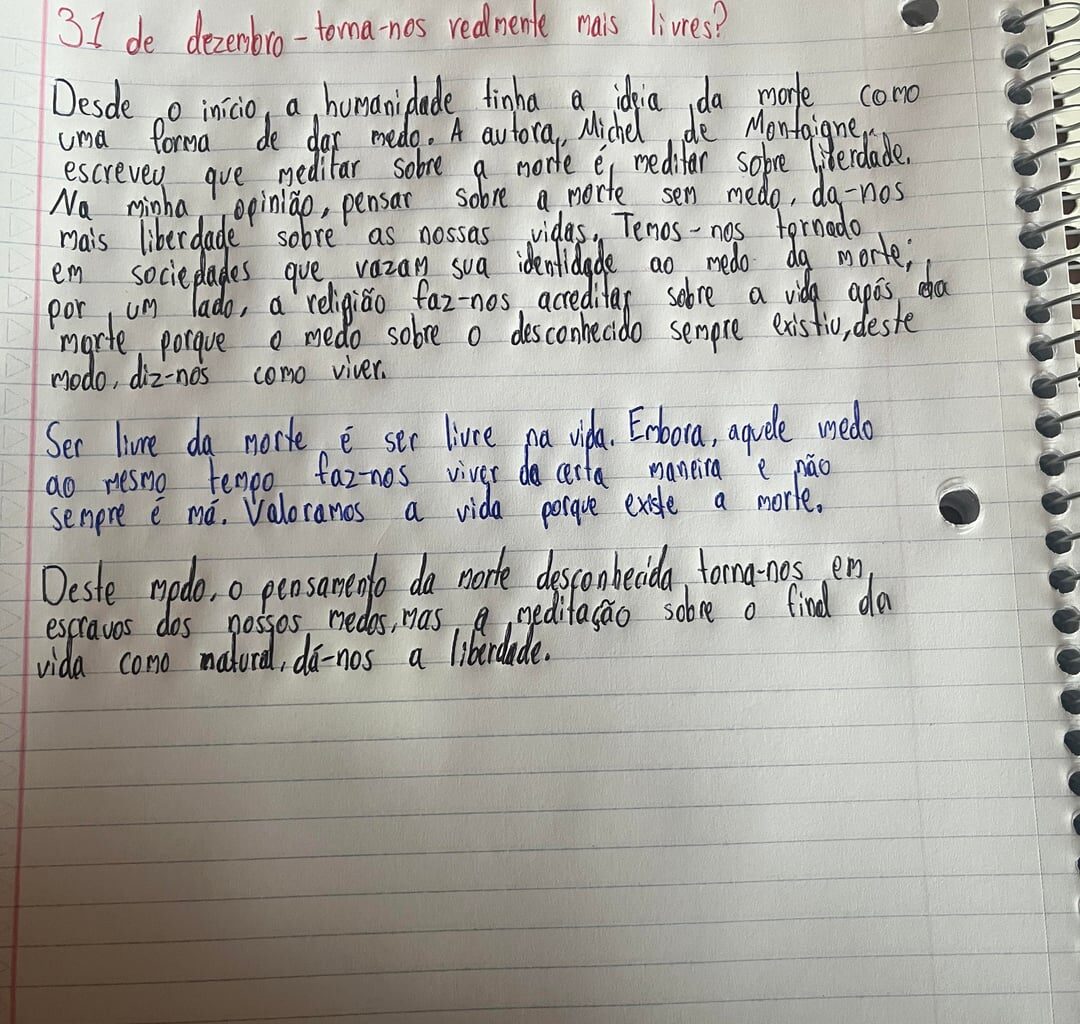 31 de dezembro - torna-nos realmente mais livres?
Desde o início, a humanidade tinha a ideia da morte como
uma forma de dar medo. A autora, Michel de Montaigne,
escreveu que meditar sobre a morte é, meditar sobre liberdade.
Na minha opinião, pensar sobre a morte sem medo, da-nos
mais liberdade sobre as nossas vidas. Temos-nos tornado
em sociedades que vazam sua identidade ao medo da morte;
por um lado, a religião faz-nos acreditar sobre a vida após da
morte, porque o medo sobre o desconhecido sempre existiu, deste
modo, diz-nos como viver.
Ser livre da morte é ser livre na vida. Embora, aquele medo
ao mesmo tempo faz-nos viver da certa maneira e não
sempre é má. Valoramos a vida porque existe a morte.
Deste modo, o pensamento da morte desconhecida, torna-nos em
escravos dos nossos medos, mas a meditação sobre o final da
vida como natural, dá-nos a liberdade.